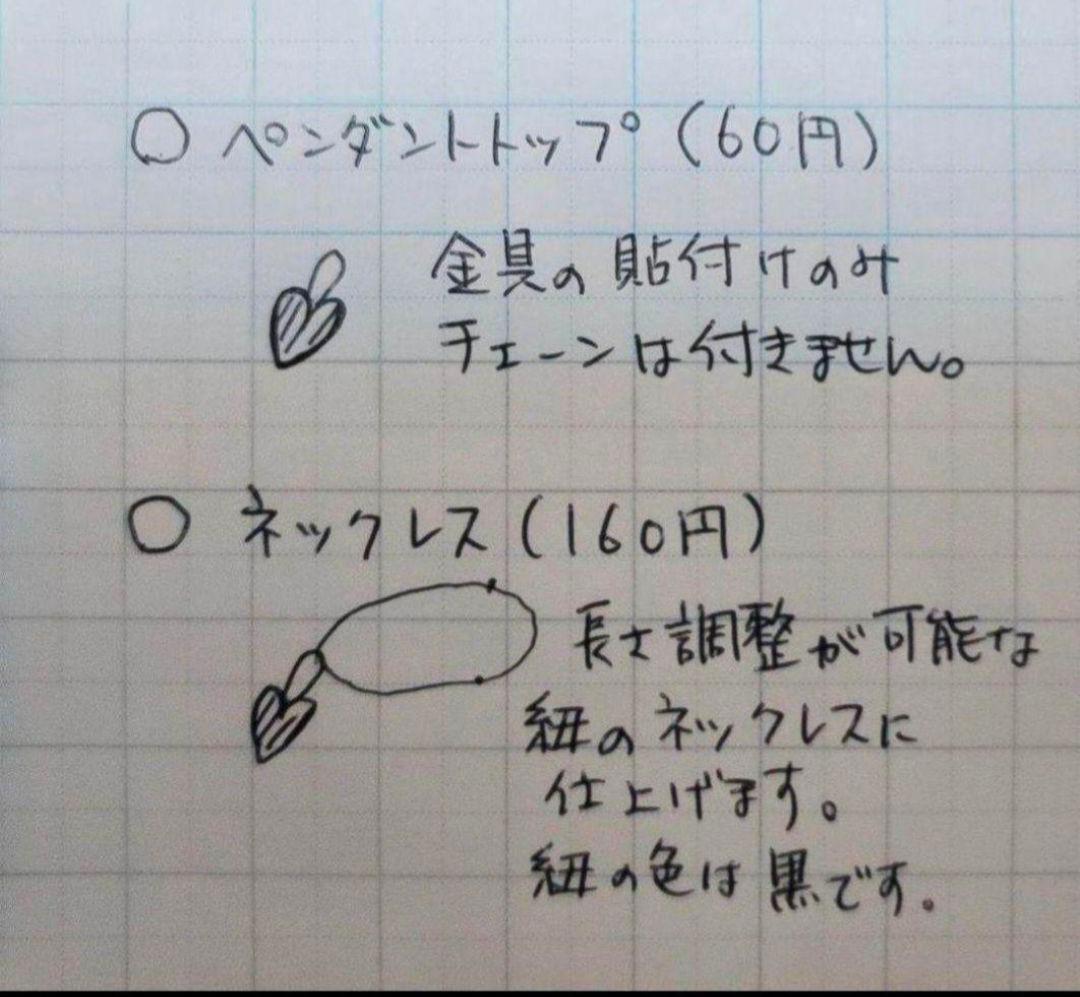 ○ ペンダントトップ（60円）
金具の貼付けのみ
チェーンは付きません。
○ ネックレス（160円）
長さ調整が可能な
紐のネックレスに
仕上げます。
紐の色は黒です。